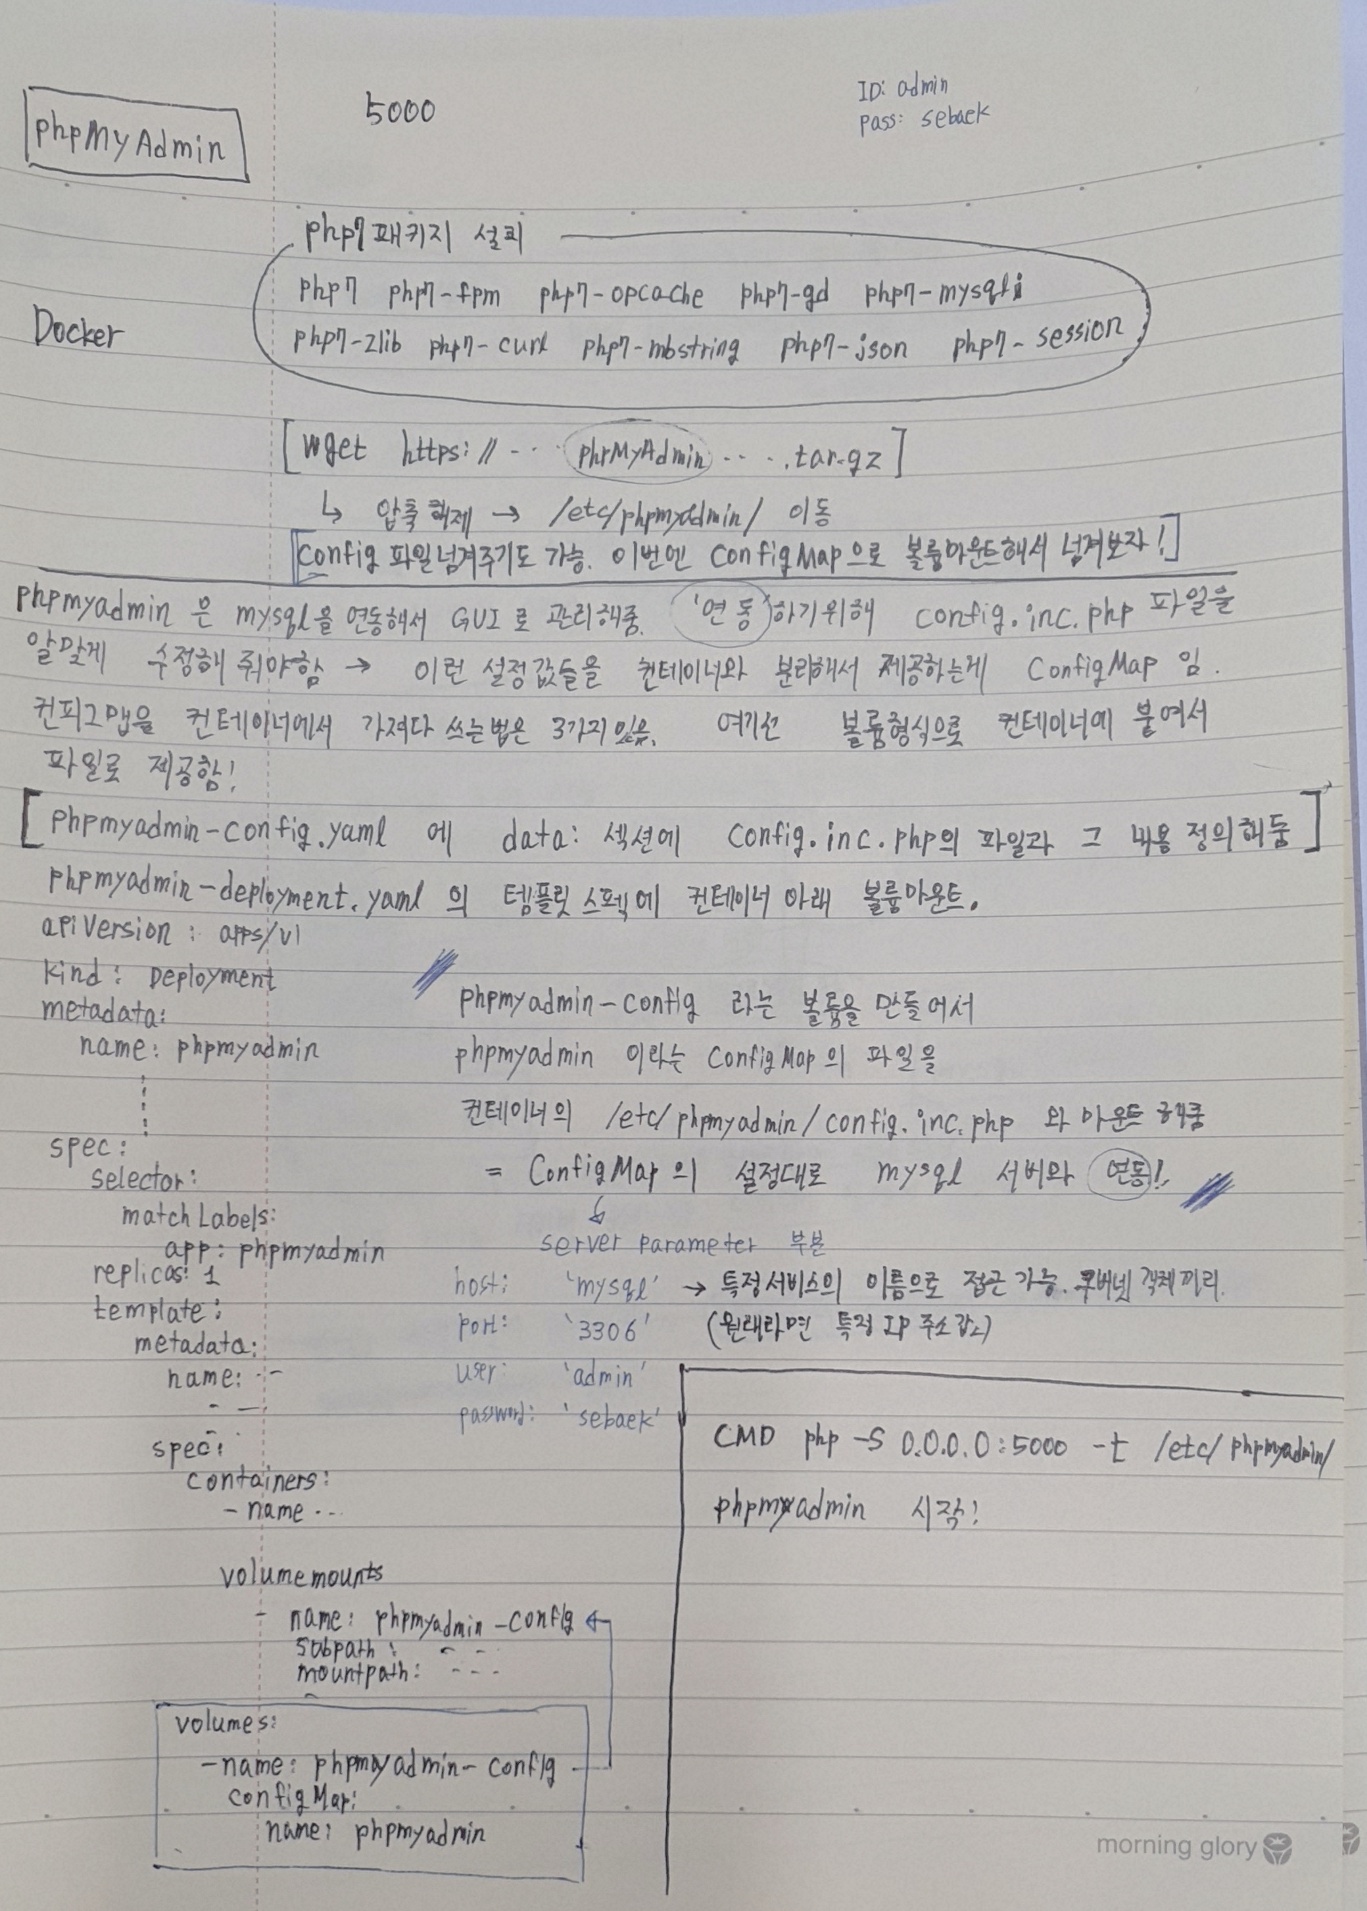 phpMyAdmin
5000
ID: admin
pass: sebaek
php7 패키지 설치
php7 php7-fpm php7-opcache php7-gd php7-mysqli
Docker
php7-zlib php7-curl php7-mbstring php7-json php7-session
[wget https:// ··· phpMyAdmin ··· .tar.gz]
↳ 압축해제 → /etc/phpmyadmin/ 이동
[config 파일넘겨주기도 가능. 이번엔 ConfigMap으로 볼륨마운트해서 넘겨보자!]
phpmyadmin 은 mysql을 연동해서 GUI로 관리해줌. '연동'하기위해 config.inc.php 파일을
알맞게 수정해 줘야함 → 이런 설정값들을 컨테이너와 분리해서 제공하는게 ConfigMap 임.
컨피그맵을 컨테이너에서 가져다 쓰는법은 3가지 있음. 여기선 볼륨형식으로 컨테이너에 붙여서
파일로 제공함!
[phpmyadmin-config.yaml 에 data: 섹션에 config.inc.php의 파일과 그 내용 정의해둠]
phpmyadmin-deployment.yaml 의 템플릿 스펙에 컨테이너 아래 볼륨마운트.
apiVersion: apps/v1
kind: Deployment
metadata:
name: phpmyadmin
spec:
selector:
matchLabels:
app: phpmyadmin
replicas: 1
template:
metadata:
name: --
- —
spec:
containers:
- name ---
volumemounts
- name: phpmyadmin-config
subpath: - - -
mountpath: - - -
volumes:
- name: phpmyadmin-config
configMap:
name: phpmyadmin
phpmyadmin-config 라는 볼륨을 만들어서
phpmyadmin 이라는 ConfigMap의 파일을
컨테이너의 /etc/phpmyadmin/config.inc.php 와 마운트 해줌
= ConfigMap의 설정대로 mysql 서버와 연동!
server parameter 부분
host: 'mysql' → 특정서비스의 이름으로 접근 가능. 쿠버넷 객체끼리.
port: '3306' (원래라면 특정 IP 주소값)
user: 'admin'
password: 'sebaek'
CMD php -S 0.0.0.0:5000 -t /etc/phpmyadmin/
phpmyadmin 시작!
morning glory